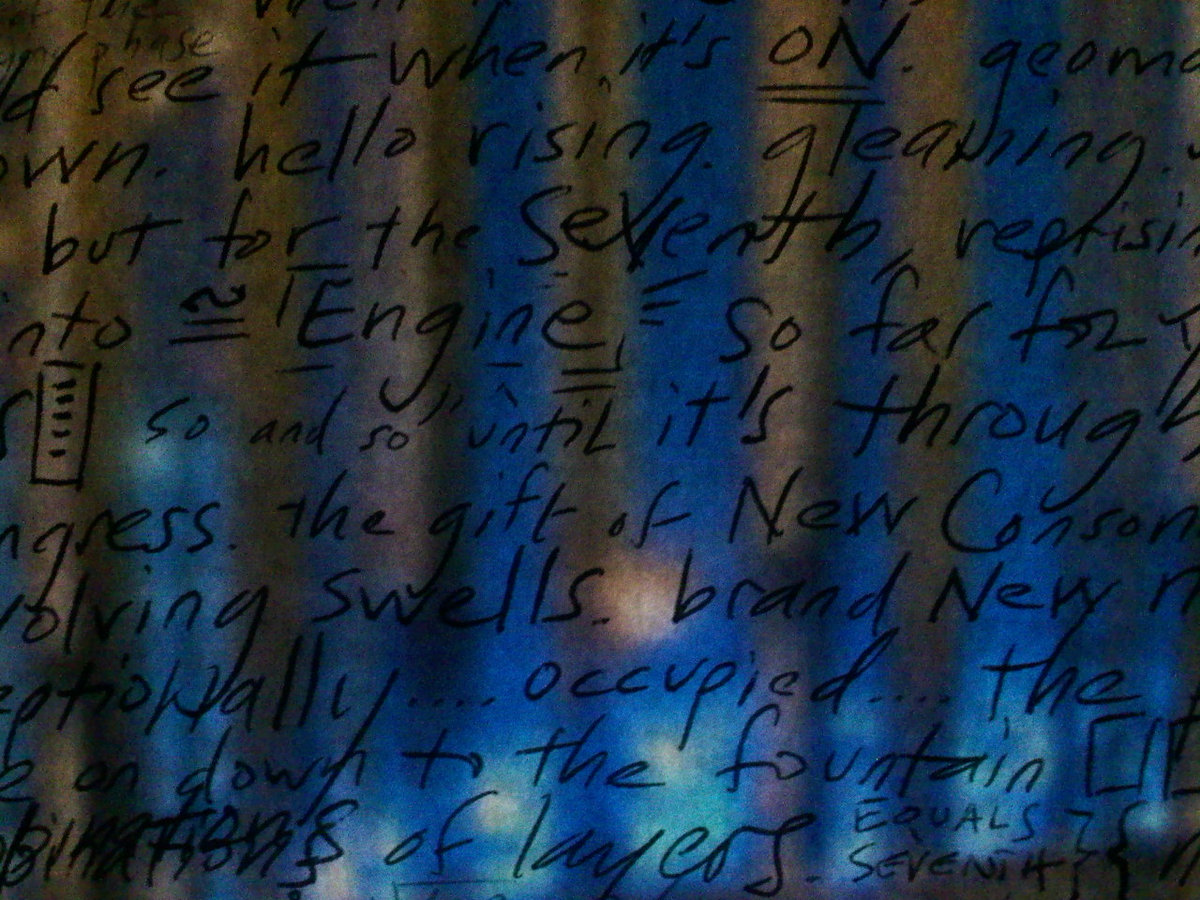 the when
phase
see it when it's ON. geom
own. hello rising. gleaming.
but for the Seventh, reprisin
into ≅ Engine, so far for
so and so until it's through
ngress. the gift of New Conson
volving swells. brand New
eptionally.... occupied.... the
on down to the fountain
binations of layers. EQUALS
SEVENTH }{